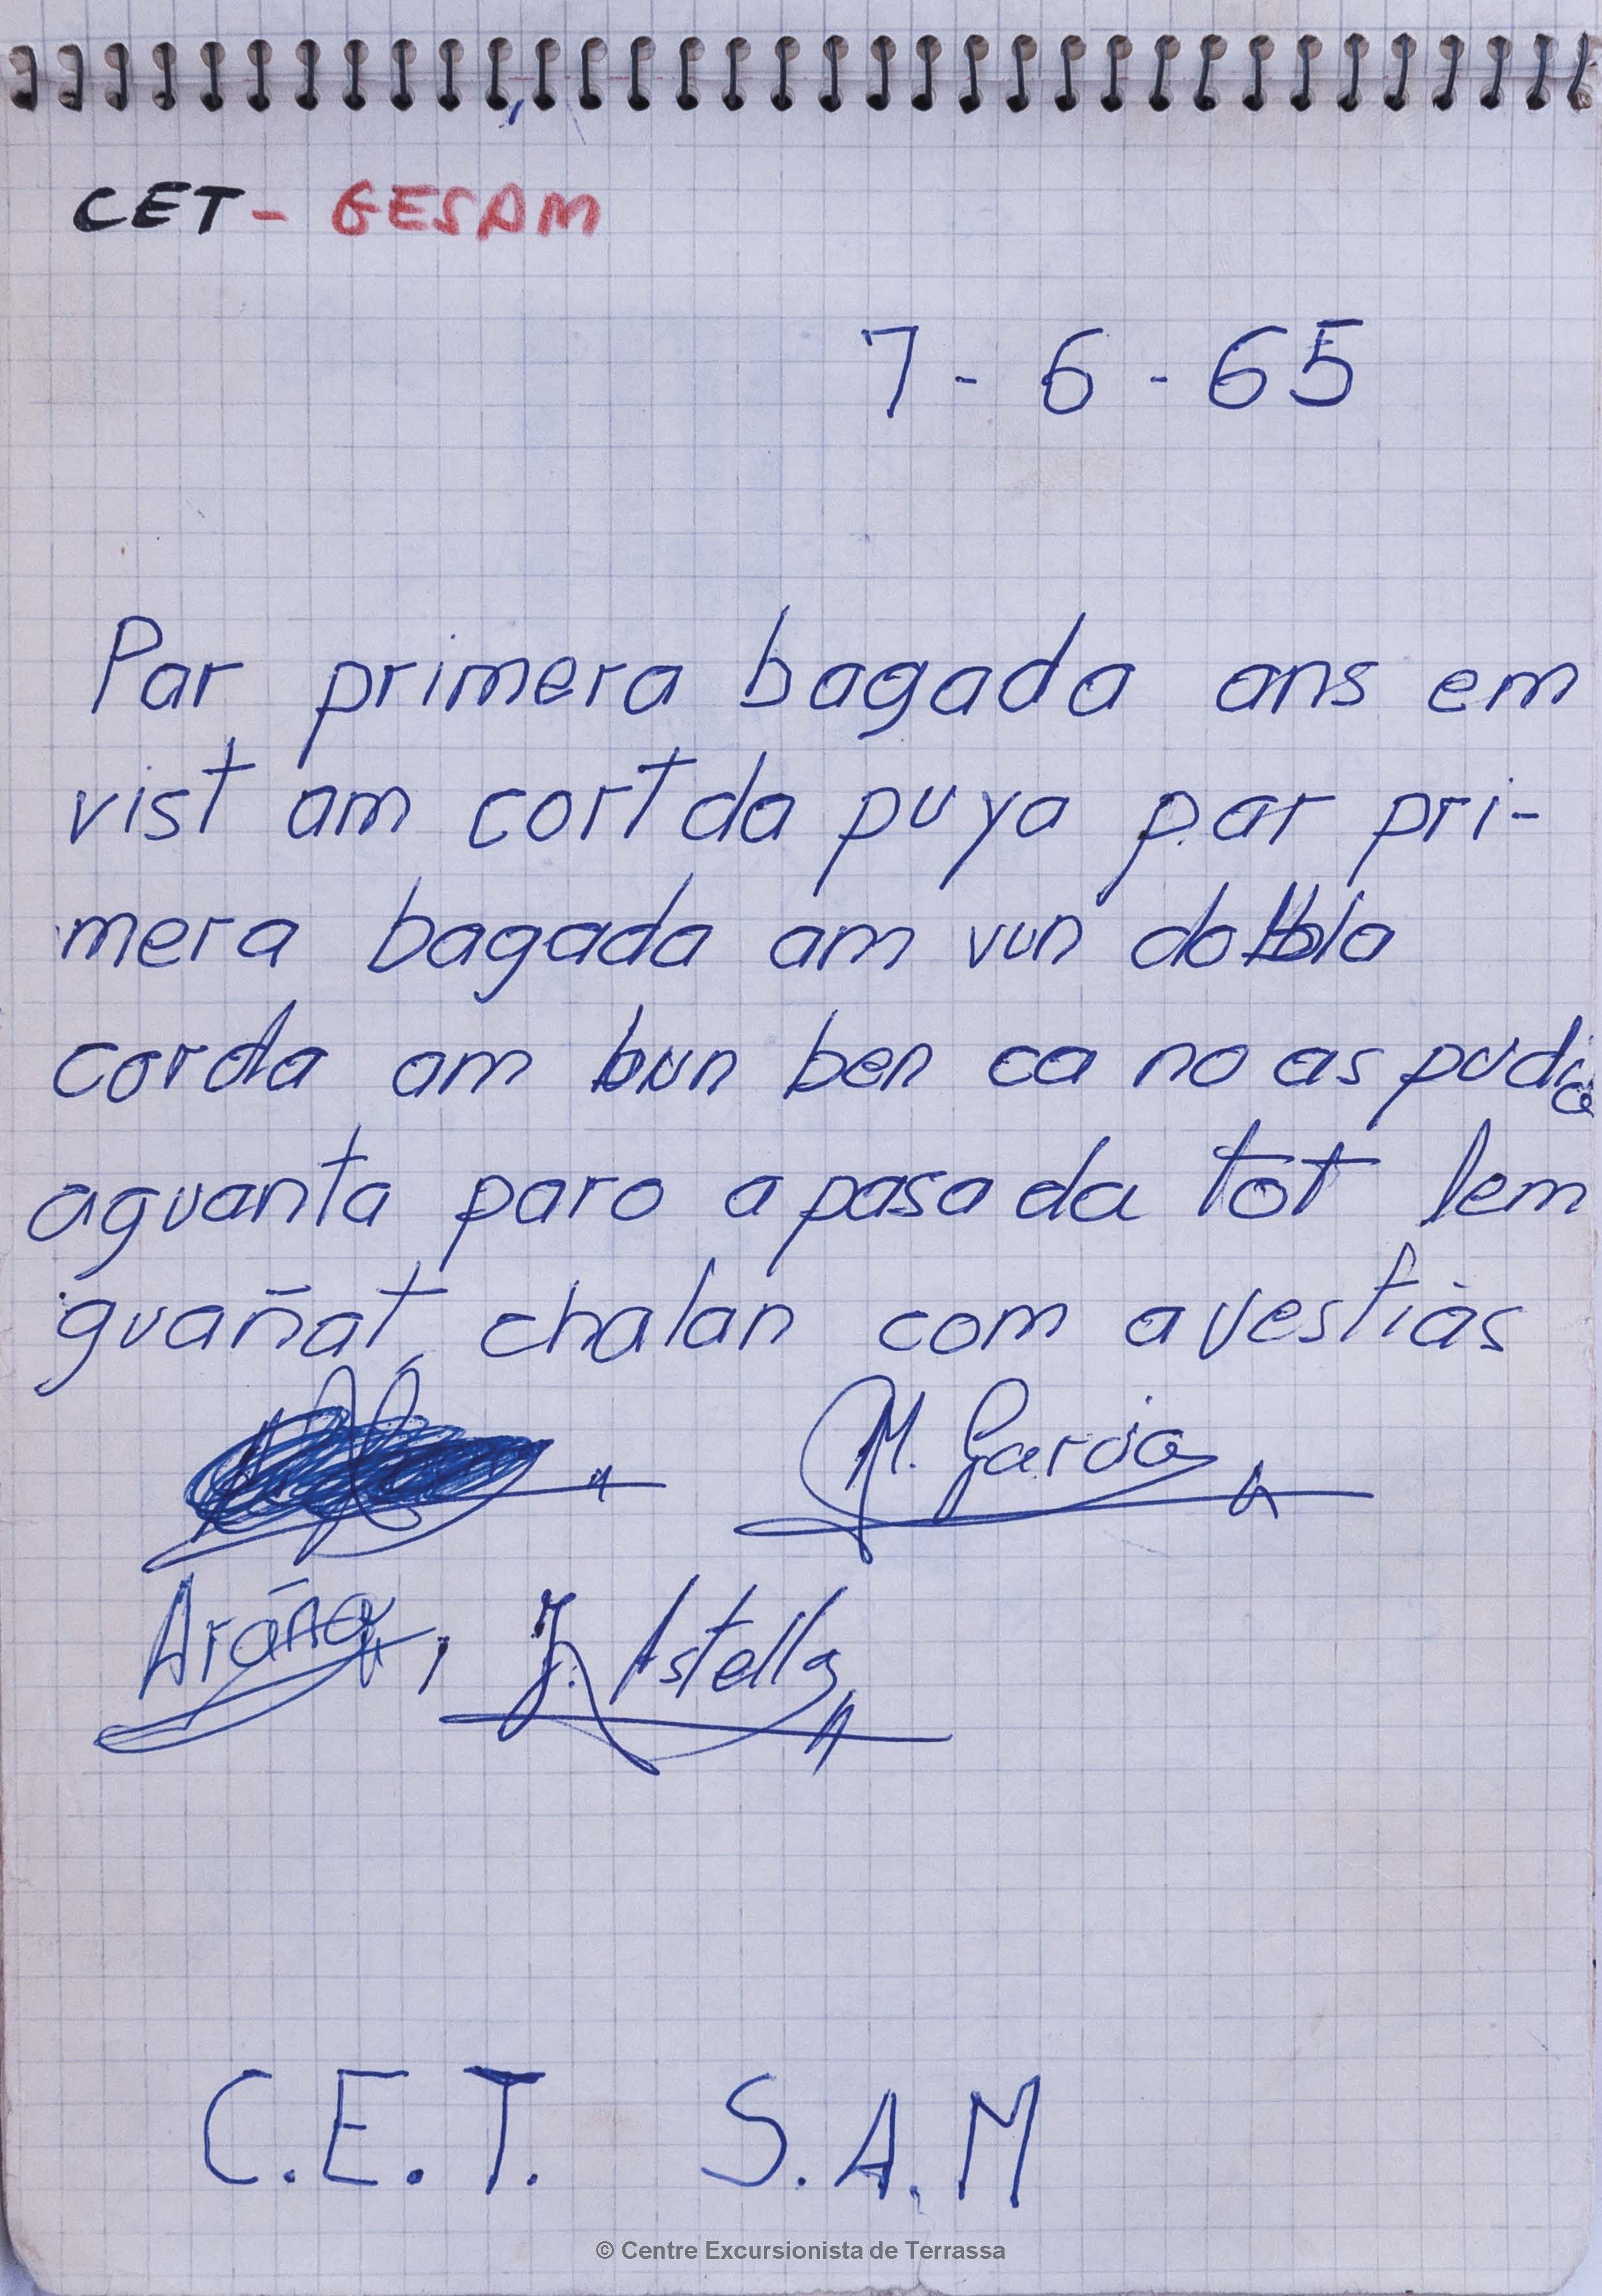 CET - GESAM
7 - 6 - 65
Par primera bagada ans em
vist am cort da puya par pri-
mera bagada am vun dobla
corda am bun ben ca no as pudia
aguanta paro a pasa da tot lem
guañat, chalan com a vestiàs
M. Garcia
Araña, J. Astella
C.E.T. S.A.M
© Centre Excursionista de Terrassa